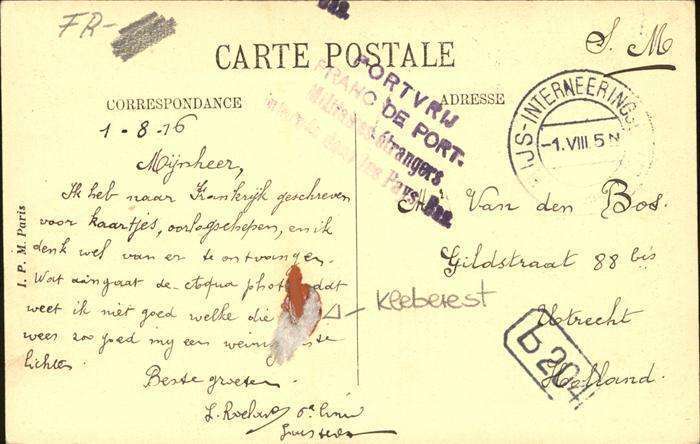 FR-
CARTE POSTALE
S. M.
CORRESPONDANCE
ADRESSE
PORTVRIJ
FRANC DE PORT.
Militaires étrangers
internés dans les Pays-Bas.
Bas.
IJS-INTERNEERING
-1.VIII.5N
1-8-16
Mijnheer,
Ik heb naar Frankrijk geschreven
voor kaartjes, oorlogschepen, en ik
denk wel van er te ontvangen.
Wat aangaat de Aqua photo dat
weet ik niet goed welke die
wees zoo goed mij een weinig te
lichten.
Beste groeten.
Kleberest
Van den Bos.
Gildstraat 88 bis
Utrecht
Holland.
b 204
I. P. M. Paris